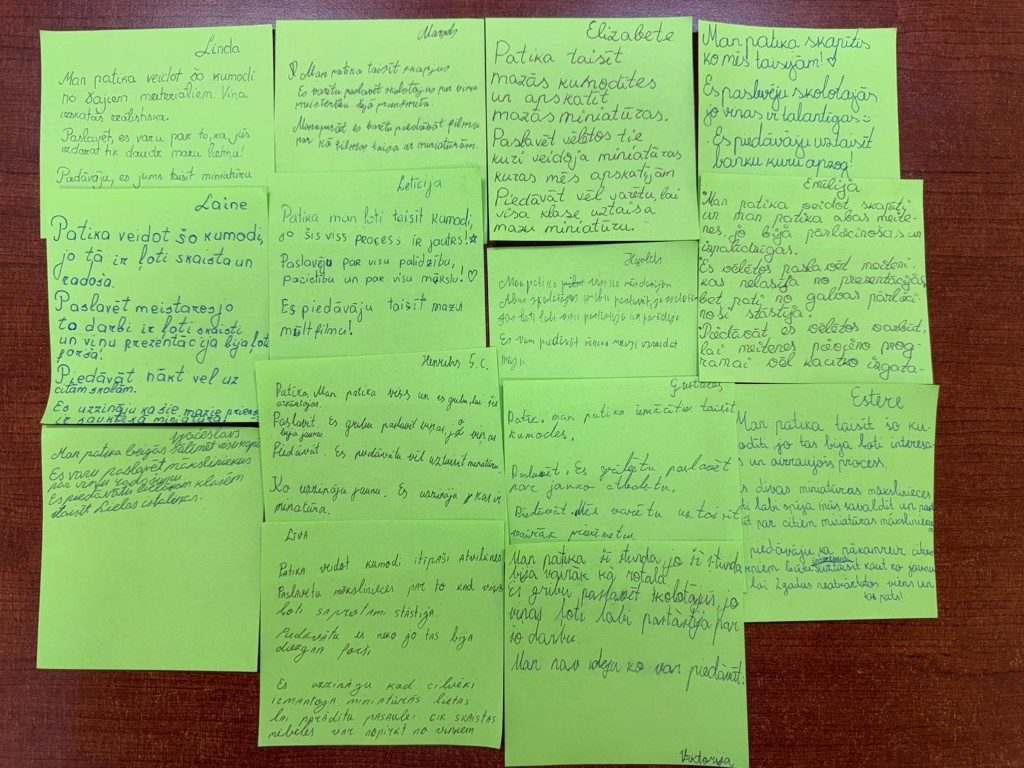 Linda
Man patika veidot šo kumodi
no šajiem materiāliem. Viņa
izskatās reālistiska.
Paslavēt, es varu par to, ka, jūs
uzdarat tik daudz mazu lietiņu!
Piedāvāju, es jums taisīt miniatūru
Marods
Man patika taisīt skapjus
Es varētu paslavēt skolotājus par viņu
Elizabete
Patika taisīt
mazās kumodītes
un apskatīt
mazās miniatūras.
Paslavēt vēlētos tie
kuri veidoja miniatūras
kuras mēs apskatījām
Piedāvāt vēl varētu, lai
visa klase uztaisa
mazu miniatūru.
Man patika skapītis
ko mēs taisījām!
Es paslavēju skolotājās
jo viņas ir talantīgas
Es piedāvāju uztaisīt
Laine
Patika veidot šo kumodi,
jo tā ir ļoti skaista un
radoša.
Paslavēt meistares jo
to darbi ir ļoti skaisti
un viņu prezentācija bija ļoti
forša!
Piedāvāt nākt vēl uz
citām skolām.
Es uzzināju ka šie mazie priekš
ir saukti kā miniatūra!
Letīcija
Patika man ļoti taisīt kumodi,
jo šis viss process ir jautrs!
Paslavēju par visu palīdzību,
pacietību un par visu mākslu!
Es piedāvāju taisīt mazu
multfilmu!
Emīlija
Man patika veidot skapīti,
un man patika abas meite-
nes, jo bija pārliecinošas un
izpalīdzīgas.
Es vēlētos paslavēt meiteni,
kas nelasīja no prezentācijas,
bet pati no galvas pārlieci-
noši stāstīja.
Piedāvāt, es vēlētos varbūt,
lai meitenes pārējino prog-
ramai vēl kautko izgata-
Henriks 5.c.
Patika. Man patika viss un es gribu, lai šie
Paslavēt. Es gribu paslavēt viņas, jo viņas
Piedāvāt. Es piedāvātu vēl uztaisīt miniatūru.
Ko uzzināju jaunu. Es uzzināju kas ir
minatūra.
Gustavs
Patīk. man patika iemācīties taisīt
kumodes.
Paslavēt. Es gribētu paslavēt
par jauko attieksmi.
Piedāvāt. Mēs varētu uztaisīt
vairāk priekšmetu.
Estere
Man patika taisīt šo ku-
modīti jo tas bija ļoti interesa-
s un aizraujošs process.
s divas miniatūras mākslinieces
ti labi spēja mūs savaldīt un pas
īt par citiem miniatūras māksliniekiem
piedāvāju ka nākamreiz citie
lai 2 gadus neatkārtotos viens un
tas pats!
Man patika beigās salīmēt visu kopā
Es varu paslavēt māksliniekus
par viņu radošumu
Es piedāvātu lielākām klasēm
taisīt lielas
Līva
Patika veidot kumodi itīpaši atvilknes
Paslavētu mākslinieces par to kad viņas
ļoti saprotam stāstīja.
Piedāvātu es neko jo tas bija
diezgan forši
Es uzzināju kad cilvēki
izmantoja miniatūrās lietas
lai parādītu pasaulei cik skaistas
mēbeles var nopirkt no viņiem
Man patika šī stunda, jo šī stunda
bija vairāk kā rotaļa.
Es gribu paslavēt skolotājus, jo
viņas ļoti labi pastāstīja par
šo darbu.
Man nav ideju ko var piedāvāt.
Viktorija